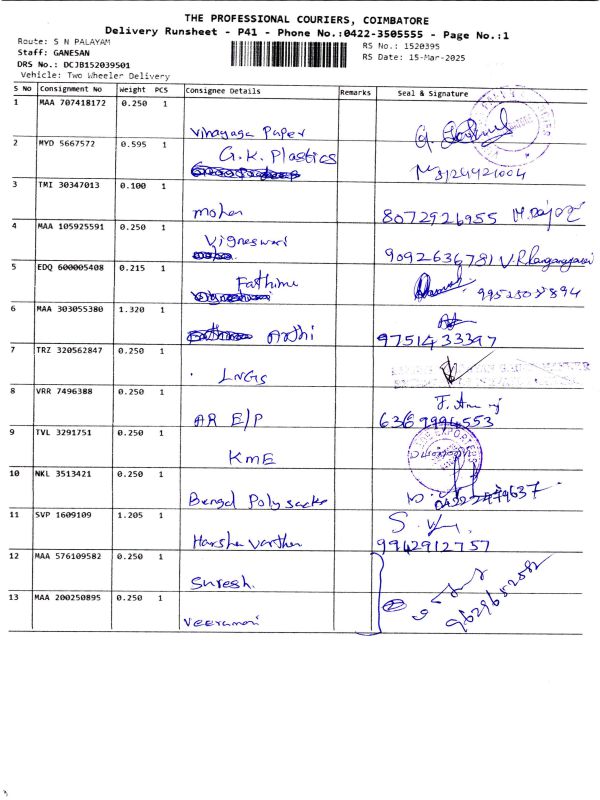 THE PROFESSIONAL COURIERS, COIMBATORE
Delivery Runsheet - P41 - Phone No.:0422-3505555 - Page No.:1
Route: S N PALAYAM
Staff: GANESAN
DRS No.: DCJB152039501
Vehicle: Two Wheeler Delivery
RS No.: 1520395
RS Date: 15-Mar-2025
S No Consignment No Weight PCS Consignee Details Remarks Seal & Signature
1 MAA 707418172 0.250 1 Vinayaga Paper
2 MYD 5667572 0.595 1 G.K. Plastics
3 TMI 30347013 0.100 1 mohan 8072926955
4 MAA 105925591 0.250 1 Vigneswari 9092636781
5 EDQ 600005408 0.215 1 Fathima
6 MAA 303055380 1.320 1 Arthi 9751433397
7 TRZ 320562847 0.250 1 LNGS
8 VRR 7496388 0.250 1 AR E/P
9 TVL 3291751 0.250 1 KME
10 NKL 3513421 0.250 1 Bengal Poly sacks
11 SVP 1609109 1.205 1 Harsha Varthan 9942912757
12 MAA 576109582 0.250 1 Suresh.
13 MAA 200250895 0.250 1 Veeramani